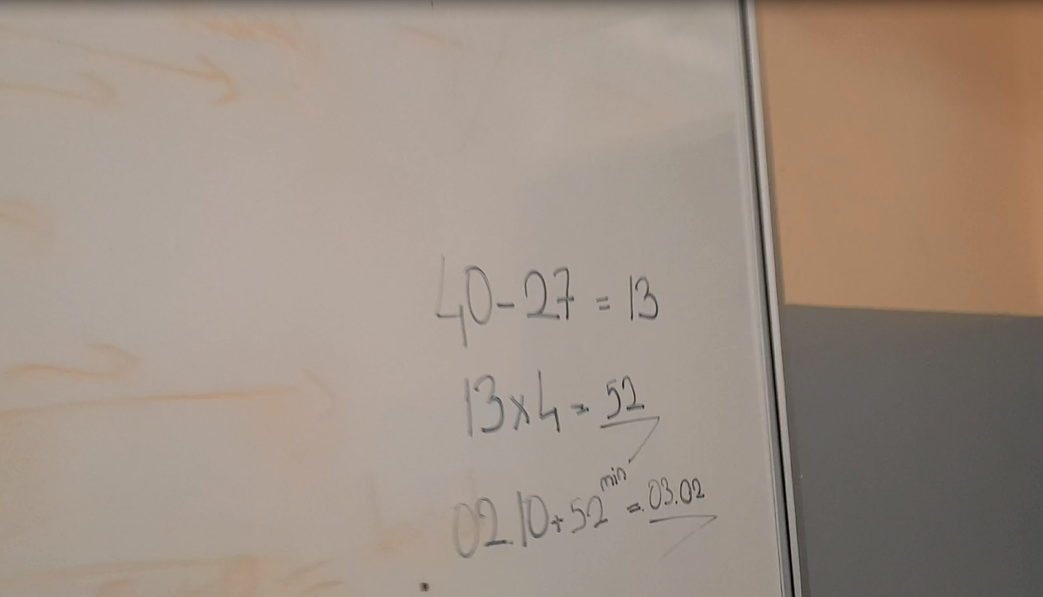 40-27 = 13
13x4 = 52
02.10+52 min = 03.02